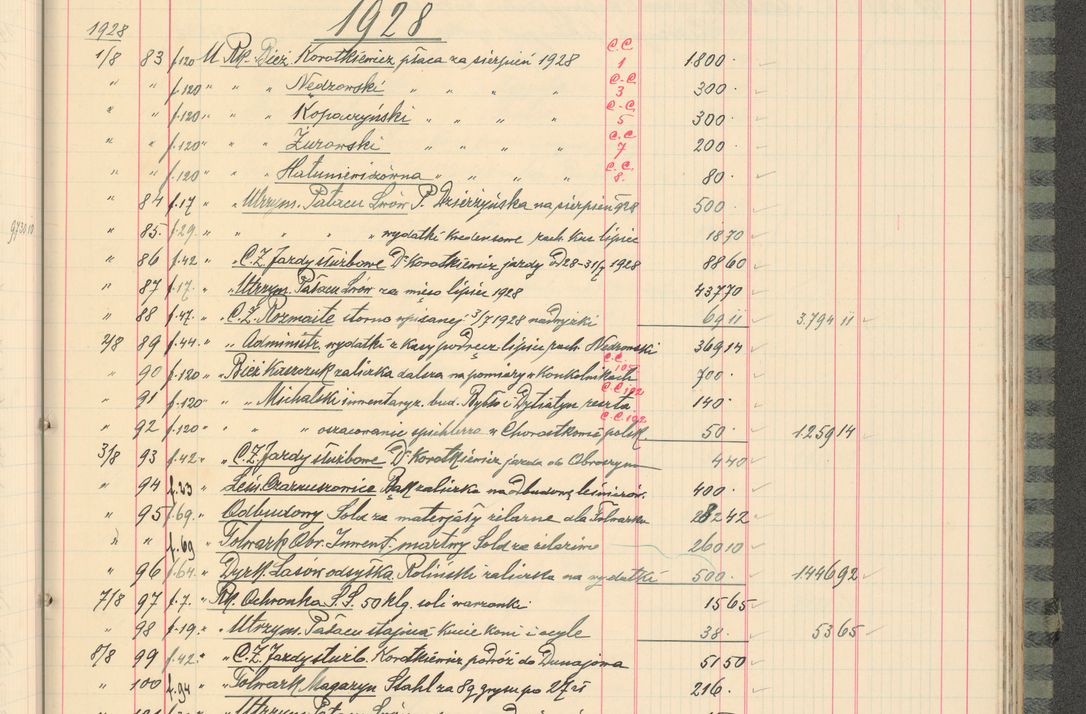 1928
1928
1/8 83 f120 U Rk. Bież. Korotkiewicz płaca za sierpień 1928 C.C 1 1800·
" " f.120 " " " Nędzowski " " " " C-C 3 300·
" " f.120 " " " Kopaczyński " " " " C-C 5 300·
" " f.120 " " " Żurowski " " " " C.C 7 200·
" " f.120 " " " Hatuniewiczówna " " " " C.C. 8 80·
" 84 f.17 " " Utrzym. Pałacu Lwów P. Dzierżyńska na sierpień 928 500·
" 85 f.29. " " " " " wydatki kredensowe rach. Kas lipiec 18 70
9730.10
" 86 f.42 " " C.Z. Jazdy służbowe Dr Korotkiewicz jazdy od 28-31/7 1928 88 60
" 87 f.17. " " Utrzym. Pałacu Lwów za mięso lipiec 1928 437 70
" 88 f.47. " " C.Z. Rozmaite storno wpisanej 3/7 1928 69 11 3.794 11
2/8 89 f.44. " " Administr. wydatki z kasy podręcz. lipiec rach. Nędzowski 369 14
" 90 f.120 " " Bież Kaszczuk zaliczka dalsza na pomiary w Konkolnikach C.C. 105 700·
" 91 f.120 " " " Michalski inwentaryz. bud. Bybło i Dytiatyn reszta C.C 192 140·
" 92 f.120 " " " oszacowanie spichlerza w Chorostkowie polsk. C.C. 192 50· 1.259 14
3/8 93 f.42 " " C.Z. Jazdy służbowe Dr Korotkiewicz jazda do Obroszyna 4 40
" 94 f.23 " Leśn. Bąk zaliczka na odbudowę 400·
" 95 f.69. " Odbudowy Sold za materjały żelazne dla Folwarku 282 42
" " f.69 " Folwark Obr. Inwent. martwy Sold za żelaziwo 260 10
" 96 f.64. " Dyrk. Lasów odsyłka Roliński zaliczka na wydatki 500· 1.446 92
7/8 97 f.7. " Rk. Ochronka S.S. 50 klg. soli warzonki 15 65
" 98 f.19. " " Utrzym. Pałacu stajnia Kucie koni i ocyle 38· 53 65
8/8 99 f.42 " " C.Z. Jazdy służb. Korotkiewicz podróż do Dunajowa 51 50
" 100 f.94 " " Folwark Magazyn Stahl za 8q grysu po 27 zł 216·